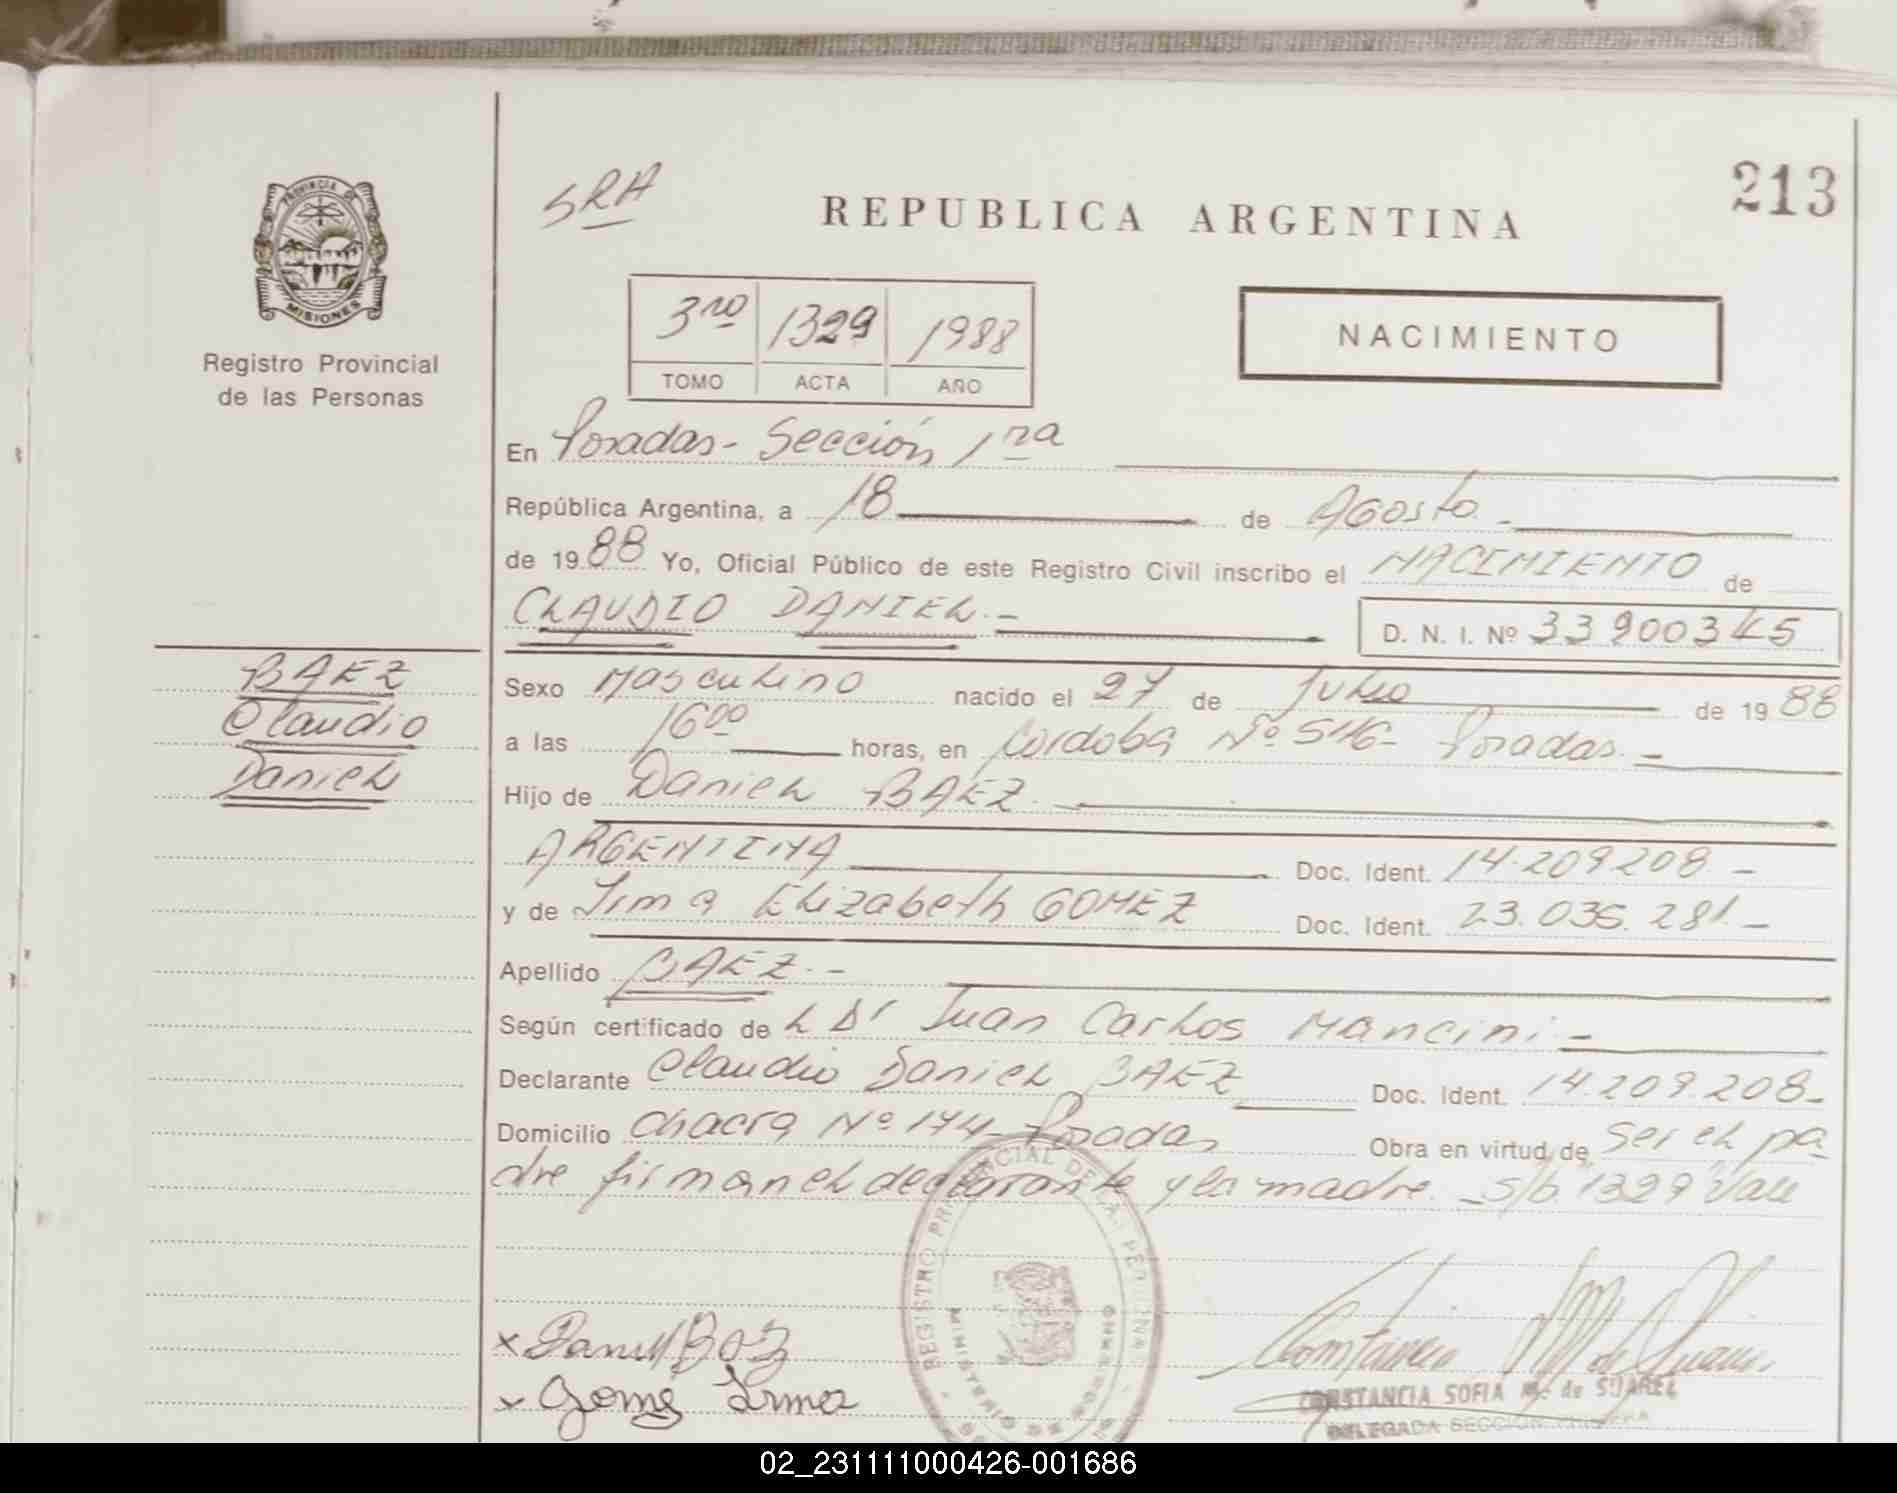 213
SRA
REPUBLICA ARGENTINA
PROVINCIA DE
MISIONES
Registro Provincial
de las Personas
3ro 1329 1988
TOMO ACTA AÑO
NACIMIENTO
En Posadas - Sección 1ra
República Argentina, a 18 de Agosto.-
de 1988 Yo, Oficial Público de este Registro Civil inscribo el NACIMIENTO de
CLAUDIO DANIEL.- D. N. I. Nº 33900345
BAEZ
Claudio
Daniel
Sexo Masculino nacido el 27 de Julio de 1988
a las 16 00 horas, en Córdoba Nº 516- Posadas.-
Hijo de Daniel BAEZ.-
ARGENTINA Doc. Ident. 14.209.208.-
y de Irma Elizabeth GOMEZ Doc. Ident. 23.036.281.-
Apellido BAEZ.-
Según certificado de L Dr Juan Carlos Mancini.-
Declarante Claudio Daniel BAEZ Doc. Ident. 14.209.208.-
Domicilio Chacra Nº 174- Posadas Obra en virtud de ser el pa
dre firman el declarante y la madre.- s/b. 1329 Vale
Daniel
Gome Irma
CONSTANCIA SOFIA M. de SUAREZ
DELEGADA SECCION PRIMERA
02_231111000426-001686